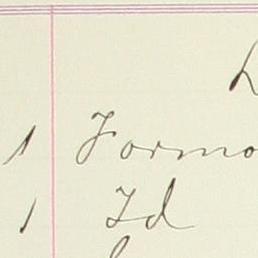 1 Formo
1 Id